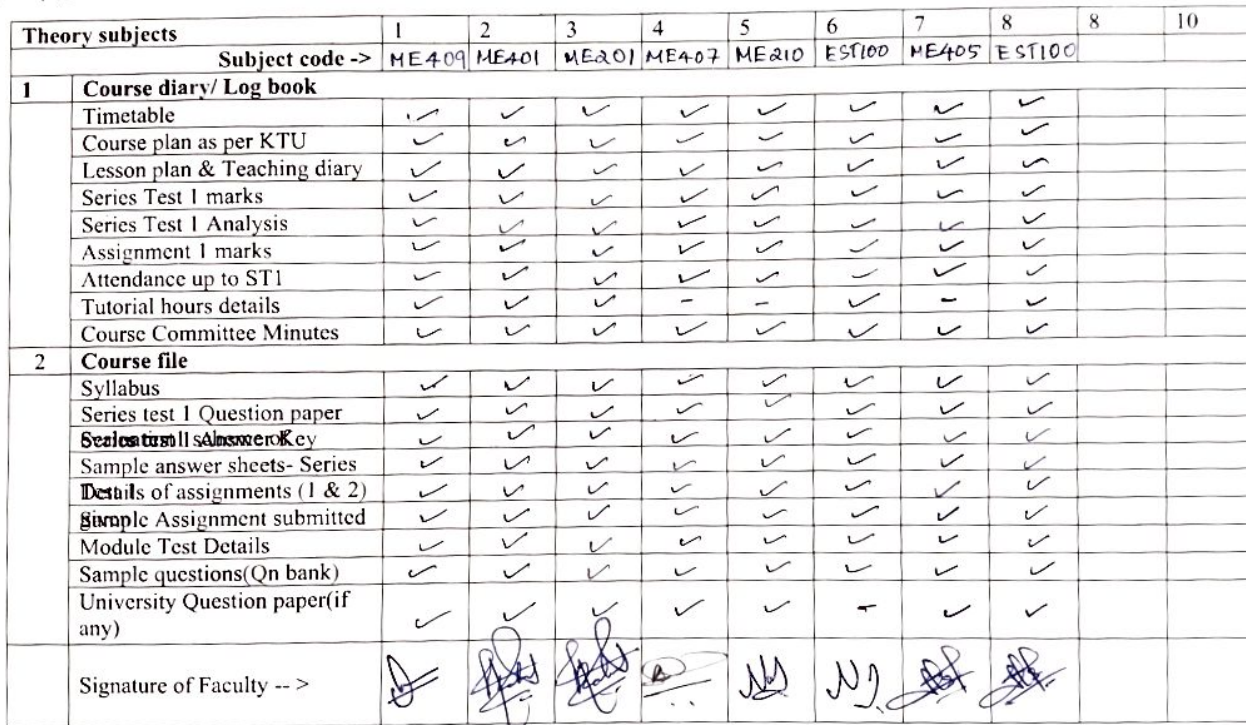 Theory subjects 1 2 3 4 5 6 7 8 8 10
Subject code -> ME409 ME401 ME201 ME407 ME210 EST100 ME405 EST100
1 Course diary/ Log book
Timetable ✓ ✓ ✓ ✓ ✓ ✓ ✓ ✓
Course plan as per KTU ✓ ✓ ✓ ✓ ✓ ✓ ✓ ✓
Lesson plan & Teaching diary ✓ ✓ ✓ ✓ ✓ ✓ ✓ ✓
Series Test 1 marks ✓ ✓ ✓ ✓ ✓ ✓ ✓ ✓
Series Test 1 Analysis ✓ ✓ ✓ ✓ ✓ ✓ ✓ ✓
Assignment 1 marks ✓ ✓ ✓ ✓ ✓ ✓ ✓ ✓
Attendance up to ST1 ✓ ✓ ✓ ✓ ✓ ✓ ✓ ✓
Tutorial hours details ✓ ✓ ✓ - - ✓ - ✓
Course Committee Minutes ✓ ✓ ✓ ✓ ✓ ✓ ✓ ✓
2 Course file
Syllabus ✓ ✓ ✓ ✓ ✓ ✓ ✓ ✓
Series test 1 Question paper ✓ ✓ ✓ ✓ ✓ ✓ ✓ ✓
Key ✓ ✓ ✓ ✓ ✓ ✓ ✓ ✓
Sample answer sheets- Series ✓ ✓ ✓ ✓ ✓ ✓ ✓ ✓
Details of assignments (1 & 2) ✓ ✓ ✓ ✓ ✓ ✓ ✓ ✓
Assignment submitted ✓ ✓ ✓ ✓ ✓ ✓ ✓ ✓
Module Test Details ✓ ✓ ✓ ✓ ✓ ✓ ✓ ✓
Sample questions(Qn bank) ✓ ✓ ✓ ✓ ✓ ✓ ✓ ✓
University Question paper(if
any) ✓ ✓ ✓ ✓ ✓ - ✓ ✓
Signature of Faculty -- >